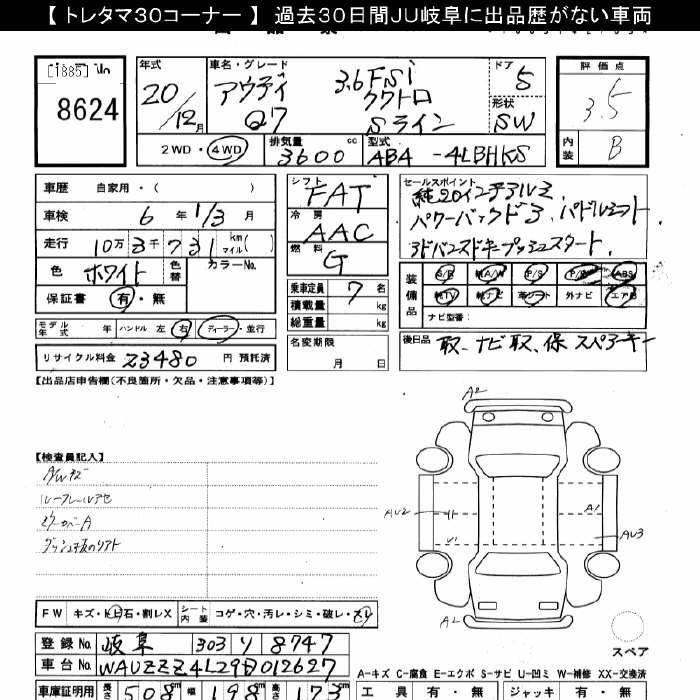 【 トレタマ30コーナー 】 過去30日間JU岐阜に出品歴がない車両
8624
年式 車名・グレード ドア 評価点
20/12月 アウディ Q7 3.6FSi クワトロ Sライン 5 3.5
形状 SW
2WD・4WD 排気量 3600 cc 型式 ABA-4LBHKS 内装 B
車歴 自家用・( ) シフト FAT セールスポイント
純20インチアルミ
車検 6年1/3月 冷房 AAC パワーバックドア、パドルシフト
走行 10万3千731 km マイル( ) 燃料 G アドバンスドキープッシュスタート
色 ホワイト 色替 カラーNo.
装備品 S/R 純A/W P/S P/W ABS
保証書 有・無 乗車定員 7名 純TV 純ナビ 革シート 外ナビ エアB
積載量 kg ナビ型番:
モデル年式 年 ハンドル 左 右 ディーラー・並行 総重量 kg
リサイクル料金 23480 円 預託済 名変期限 月 日 後日品 取、ナビ取、保 スペアキー
【出品店申告欄(不良箇所・欠品・注意事項等)】
【検査員記入】
A/Wキズ
ルーフレールアセ
ミラーカバーA
A2
AU2
A1
U1
AU3
A2
スペア
FW キズ・トビ石・割レX シート内装 コゲ・穴・汚レ・シミ・破レ・スレ
登録No. 岐阜 303 リ 8747
車台No. WAUZZZ4L29D012627
A-キズ C-腐食 E-エクボ S-サビ U-凹ミ W-補修 XX-交換済
車庫証明用 長さ 508cm 幅 198cm 高さ 173cm 工具 有・無 ジャッキ 有・無